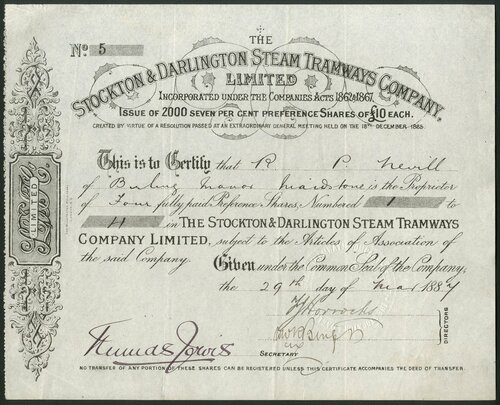 THE
Nº 5
STOCKTON & DARLINGTON STEAM TRAMWAYS COMPANY,
LIMITED
INCORPORATED UNDER THE COMPANIES ACTS 1862 & 1867.
ISSUE OF 2000 SEVEN PER CENT PREFERENCE SHARES OF £10 EACH.
CREATED BY VIRTUE OF A RESOLUTION PASSED AT AN EXTRAORDINARY GENERAL MEETING HELD ON THE 18TH DECEMBER 1885.
This is to Certify that R. P. Nevill
of Manor Maidstone is the Proprietor
of Four fully paid Preference Shares, Numbered 1 to
4 in THE STOCKTON & DARLINGTON STEAM TRAMWAYS
COMPANY LIMITED, subject to the Articles of Association of
the said Company. Given under the Common Seal of the Company,
the 29th day of Mar 1887
DIRECTORS
SECRETARY
NO TRANSFER OF ANY PORTION OF THESE SHARES CAN BE REGISTERED UNLESS THIS CERTIFICATE ACCOMPANIES THE DEED OF TRANSFER.
LIMITED